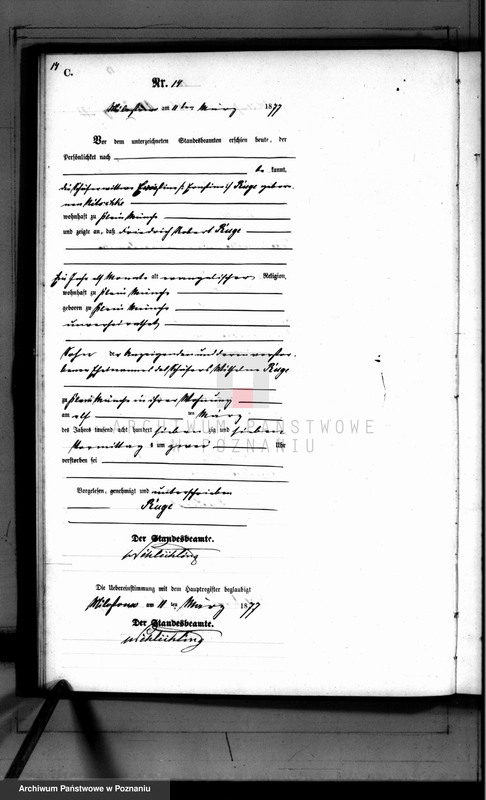 14
C.
Nr. 14
Miloslaw am 11 ten März 1877
Vor dem unterzeichneten Standesbeamten erschien heute, der
Persönlichkeit nach
be kannt,
die Ruge gebore
ne
wohnhaft zu Klein Münche
und zeigte an, daß Friedrich Robert Ruge
ein Jahr elf Monate alt evangelischer Religion,
wohnhaft zu Klein Münche
geboren zu Klein Münche
unverheirathet
Sohn der Anzeigenden und deren verstor
benen Ehemannes des Schäfers Wilhelm Ruge
zu Klein Münche in ihrer Wohnung
am elf ten März
des Jahres tausend acht hundert sieben zig und sieben
Vormittags um zwei Uhr
verstorben sei
Vorgelesen, genehmigt und unterschrieben
Ruge
Der Standesbeamte.
Schlichting
Die Uebereinstimmung mit dem Hauptregister beglaubigt
am 11 ten März 1877
Der Standesbeamte.
Schlichting
ARCHIWUM PAŃSTWOWE
W POZNANIU
Archiwum Państwowe w Poznaniu